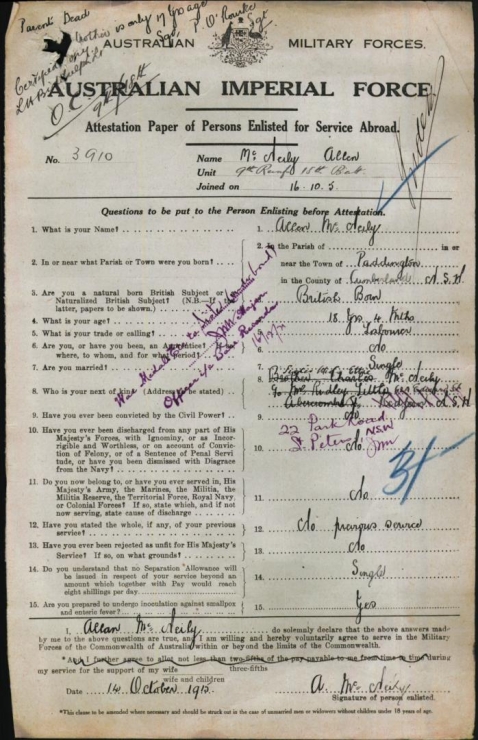 Parents Dead
brother is only 17 yrs age
P. O'Rourke
Sgt
AUSTRALIAN MILITARY FORCES.
AUSTRALIAN IMPERIAL FORCE.
Attestation Paper of Persons Enlisted for Service Abroad.
No. 3910
Name Mc Neily Allan
Unit 9th Reinf 18th Bat
Joined on 16.10.5.
Questions to be put to the Person Enlisting before Attestation.
1. What is your Name?
1. Allan Mc Neily
2. In or near what Parish or Town were you born?
2. In the Parish of in or
near the Town of Paddington
in the County of Cumberland N.S.W
3. Are you a natural born British Subject or a Naturalized British Subject? (N.B.—If the latter, papers to be shown.)
British Born
4. What is your age?
18 Yrs 4 Mths
5. What is your trade or calling?
Labourer
6. Are you, or have you been, an Apprentice? If so where, to whom, and for what period?
No
7. Are you married?
7. Single
8. Who is your next of kin? (Address to be stated)
8. Brother Charles Mc Neily
22 Park Road
St. Peters NSW
9. Have you ever been convicted by the Civil Power?
9. No
10. Have you ever been discharged from any part of His
Majesty's Forces, with Ignominy, or as Incor-
rigible and Worthless, or on account of Convic-
tion of Felony, or of a Sentence of Penal Servi-
tude, or have you been dismissed with Disgrace
from the Navy?
10. No
11. Do you now belong to, or have you ever served in, His
Majesty's Army, the Marines, the Militia, the
Militia Reserve, the Territorial Force, Royal Navy,
or Colonial Forces? If so, state which, and if not
now serving, state cause of discharge
11. No
12. Have you stated the whole, if any, of your previous
service?
12. No previous service
13. Have you ever been rejected as unfit for His Majesty's
Service? If so, on what grounds?
13. No
14. Do you understand that no Separation Allowance will
be issued in respect of your service beyond an
amount which together with Pay would reach
eight shillings per day
14. Single
15. Are you prepared to undergo inoculation against smallpox
and enteric fever?
15. Yes
I, Allan Mc Neily do solemnly declare that the above answers made
by me to the above questions are true, and I am willing and hereby voluntarily agree to serve in the Military
Forces of the Commonwealth of Australia within or beyond the limits of the Commonwealth.
*And I further agree to allot not less than two-fifths of the pay payable to me from time to time during
three-fifths
my service for the support of my wife
wife and children
Date 14 October 1915.
A. Mc Neily
Signature of person enlisted.
*This clause to be amended where necessary and should be struck out in the case of unmarried men or widowers without children under 18 years of age.